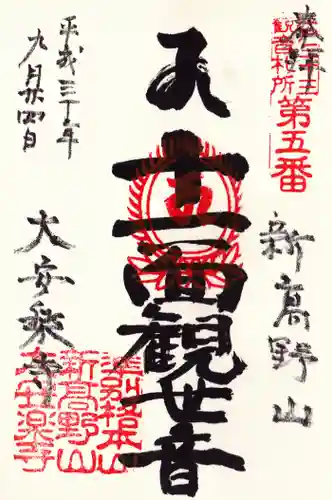 奉拝
江戸三十三
観音札所
第五番
新高野山
十一面観世音
平成三十年
九月廿四日
大安楽寺
準別格本山
新高野山
大安楽寺